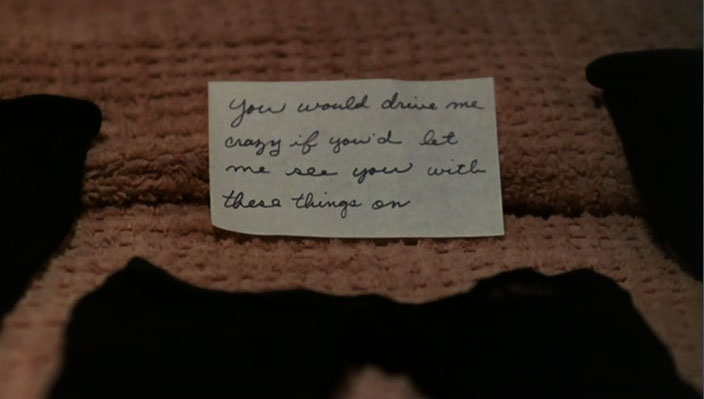 You would drive me
crazy if you'd let
me see you with
these things on